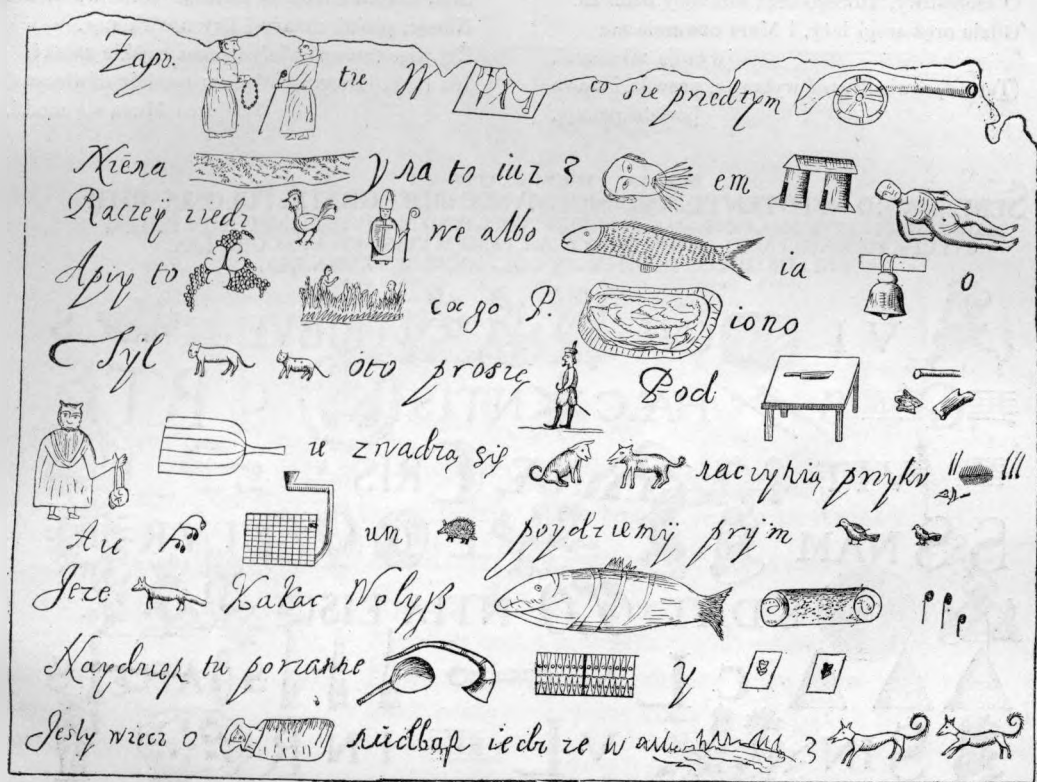 Zapo. tre W co się przedtym
Niena y na to iuz 3 em
Raczeÿ ziedz we albo ia
Apiy to cogo P. iono o
Tyl oto proszę Pod
u zwadzą się naczynią przykr
Au um poydziemÿ prÿm
Jeze Kakac Wolyß
Kaydzieß tu poranne y
Jesly wiecz o niedbaß iedz ze w 3